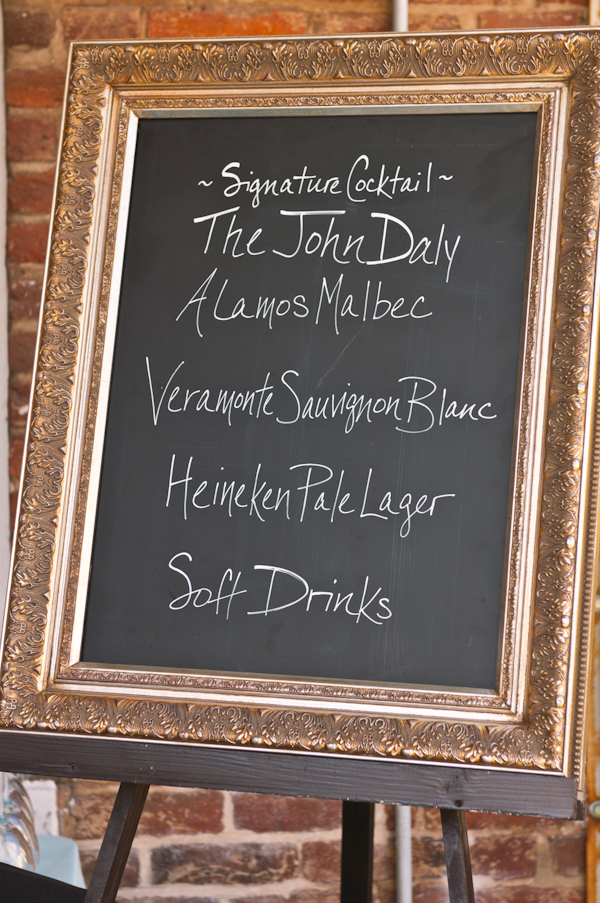 ~ Signature Cocktail ~
The John Daly
Alamos Malbec
Veramonte Sauvignon Blanc
Heineken Pale Lager
Soft Drinks